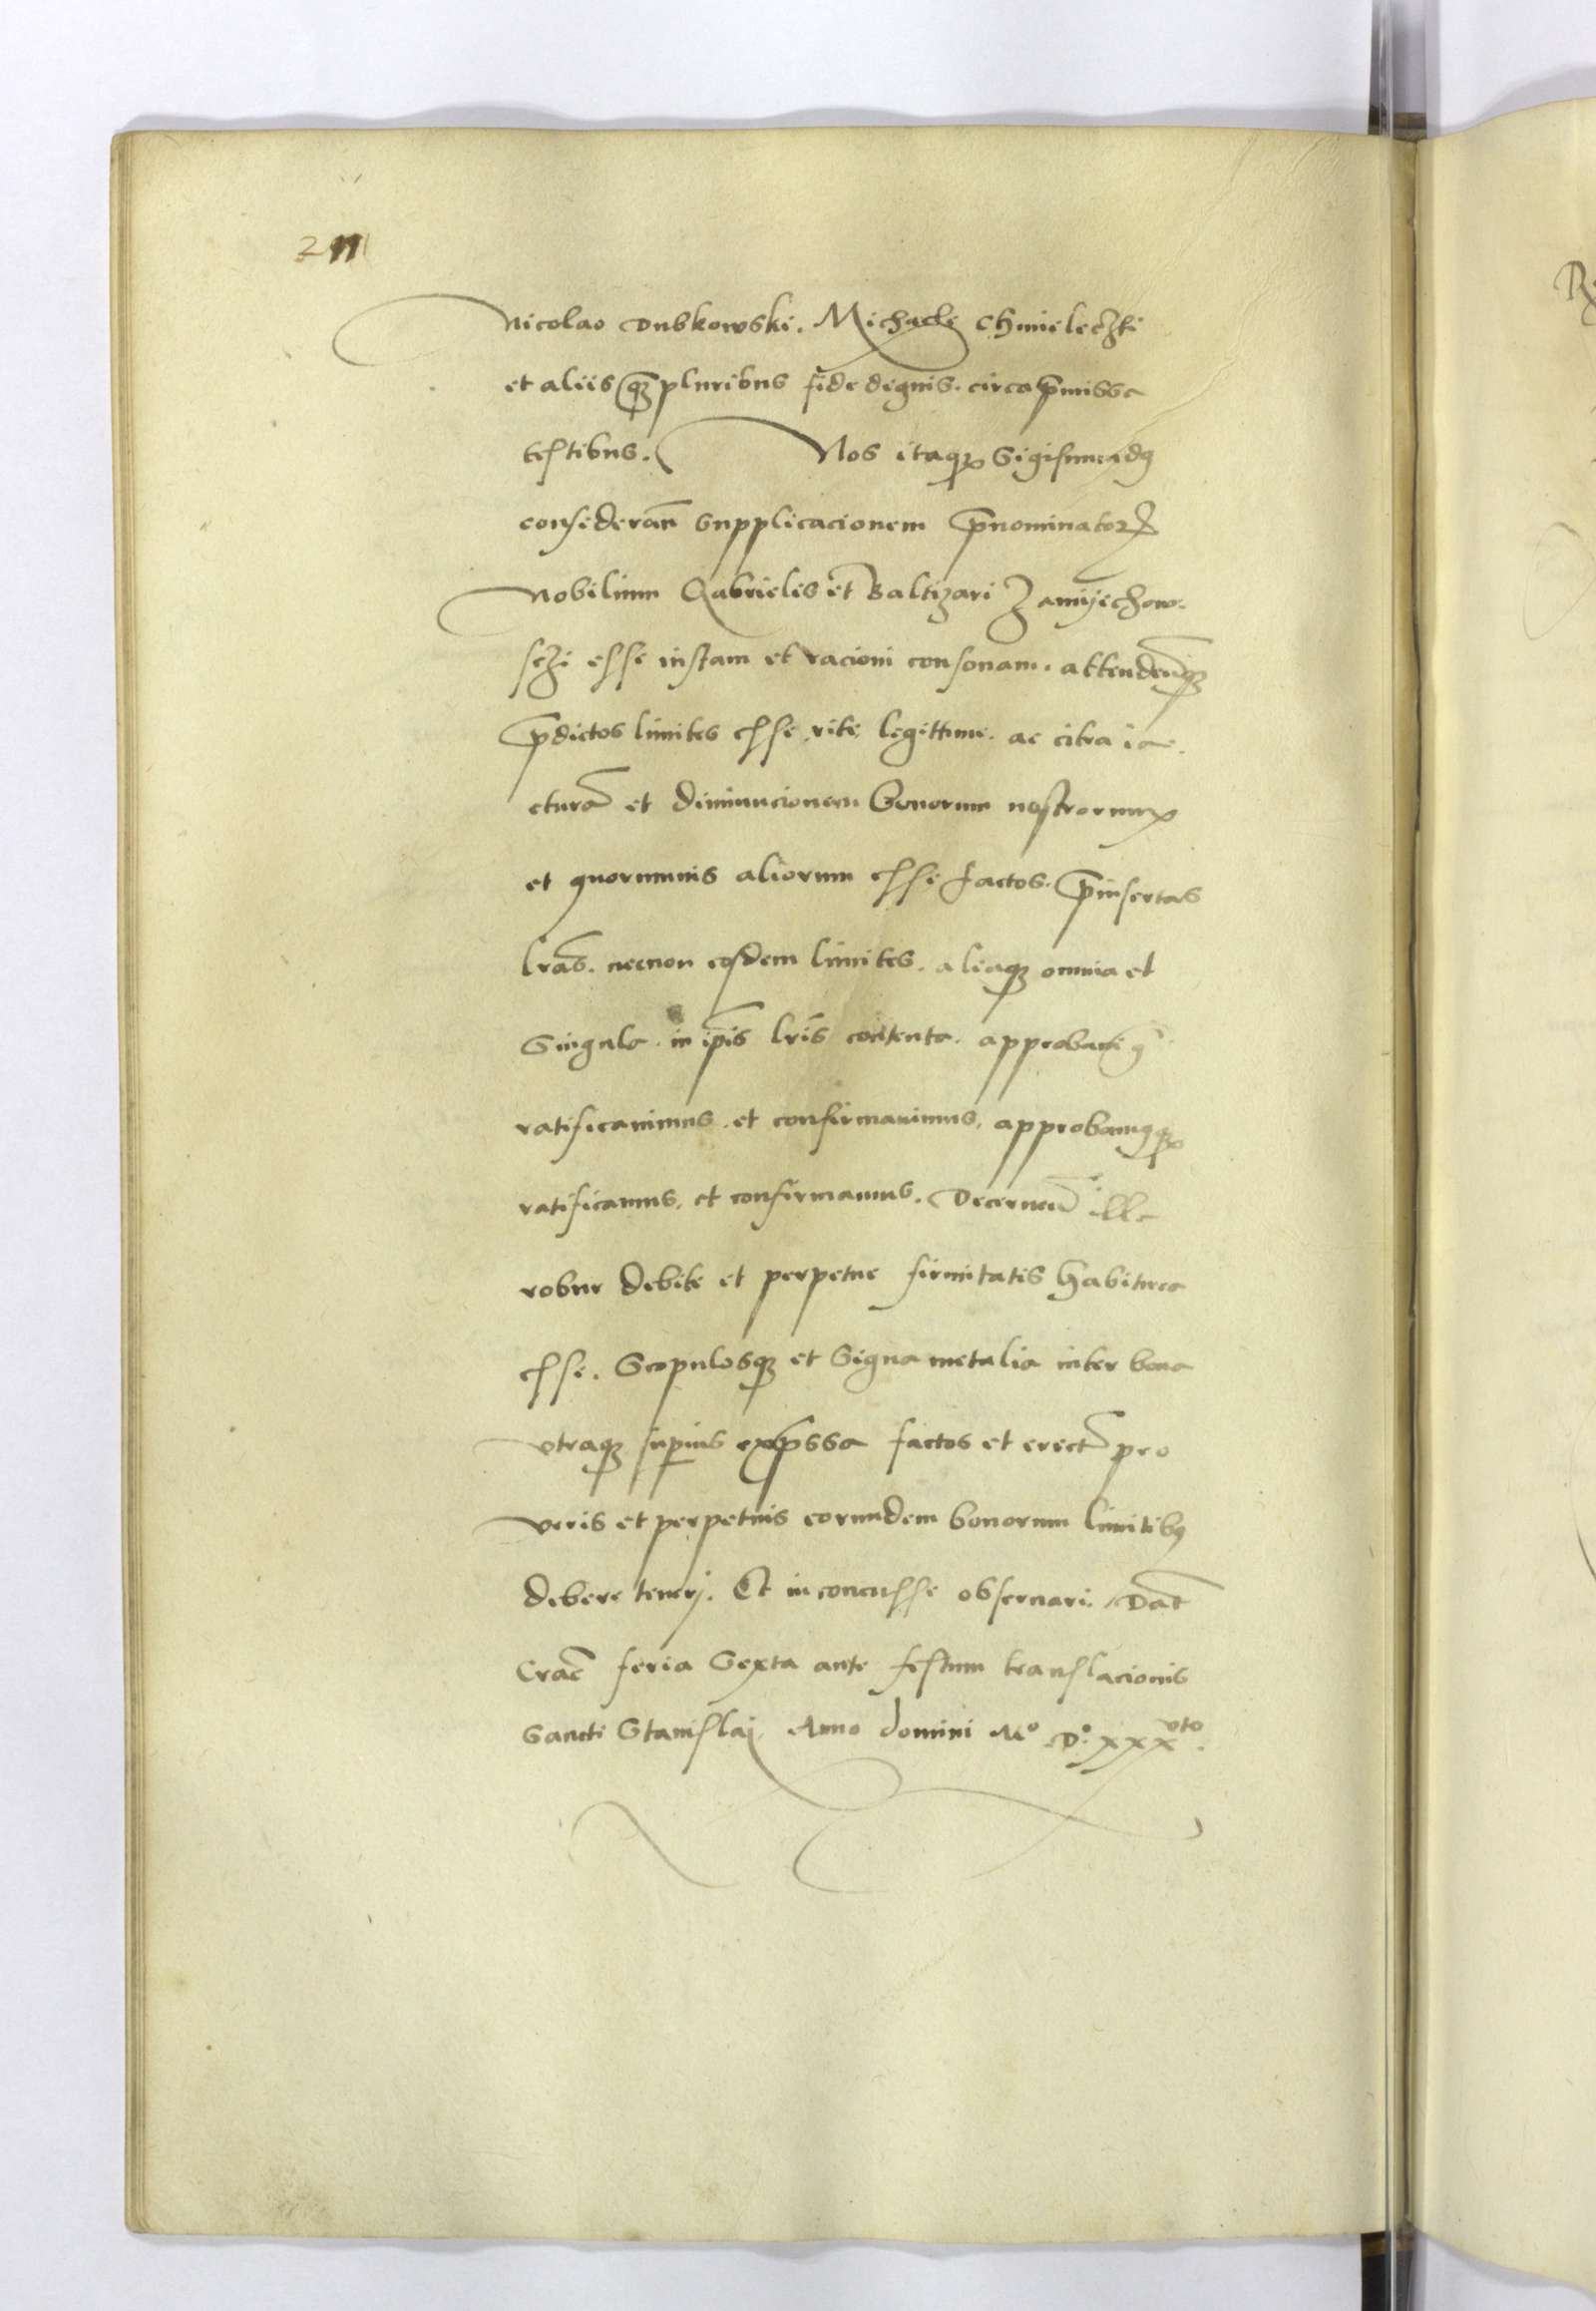 211
Nicolao Dubkowski. Michaele Chmieleczki
et aliis q̃ȝ pluribus fide dignis. circa p̃missa
testibus. Nos itaqȝ Sigismundꝰ
considerañ supplicacionem p̃nominatorꝝ
Nobilium Gabrielis et Baltizari Zamyechow-
sczi esse iustam et racioni consonam. attendeñqȝ
p̃dictos limites esse rite, legittime. ac citra ia-
cturã et diminucionem bonorum nostrorum
et quorumuis aliorum esse factos. p̃insertas
lrãs. necnon eosdem limites. aliaqȝ omnia et
Singula. in ip̃is lrĩs contenta. approbauimꝰ
ratificauimus. et confirmauimus, approbamꝰqȝ
ratificamus, et confirmamus. Decerneñ illa
robur debite et perpetue firmitatis habitura
esse. Scopulosqȝ et Signa metalia inter bona
vtraqȝ supius exp̃ssa factos et erect̃ pro
veris et perpetuis eorundem bonorum limitibꝰ
debere tenerj. Et inconcusse obseruari. Dat̃
Crac̃ feria Sexta ante festum translacionis
Sancti Stanislaj. Anno domini Mº Dº xxxvto.